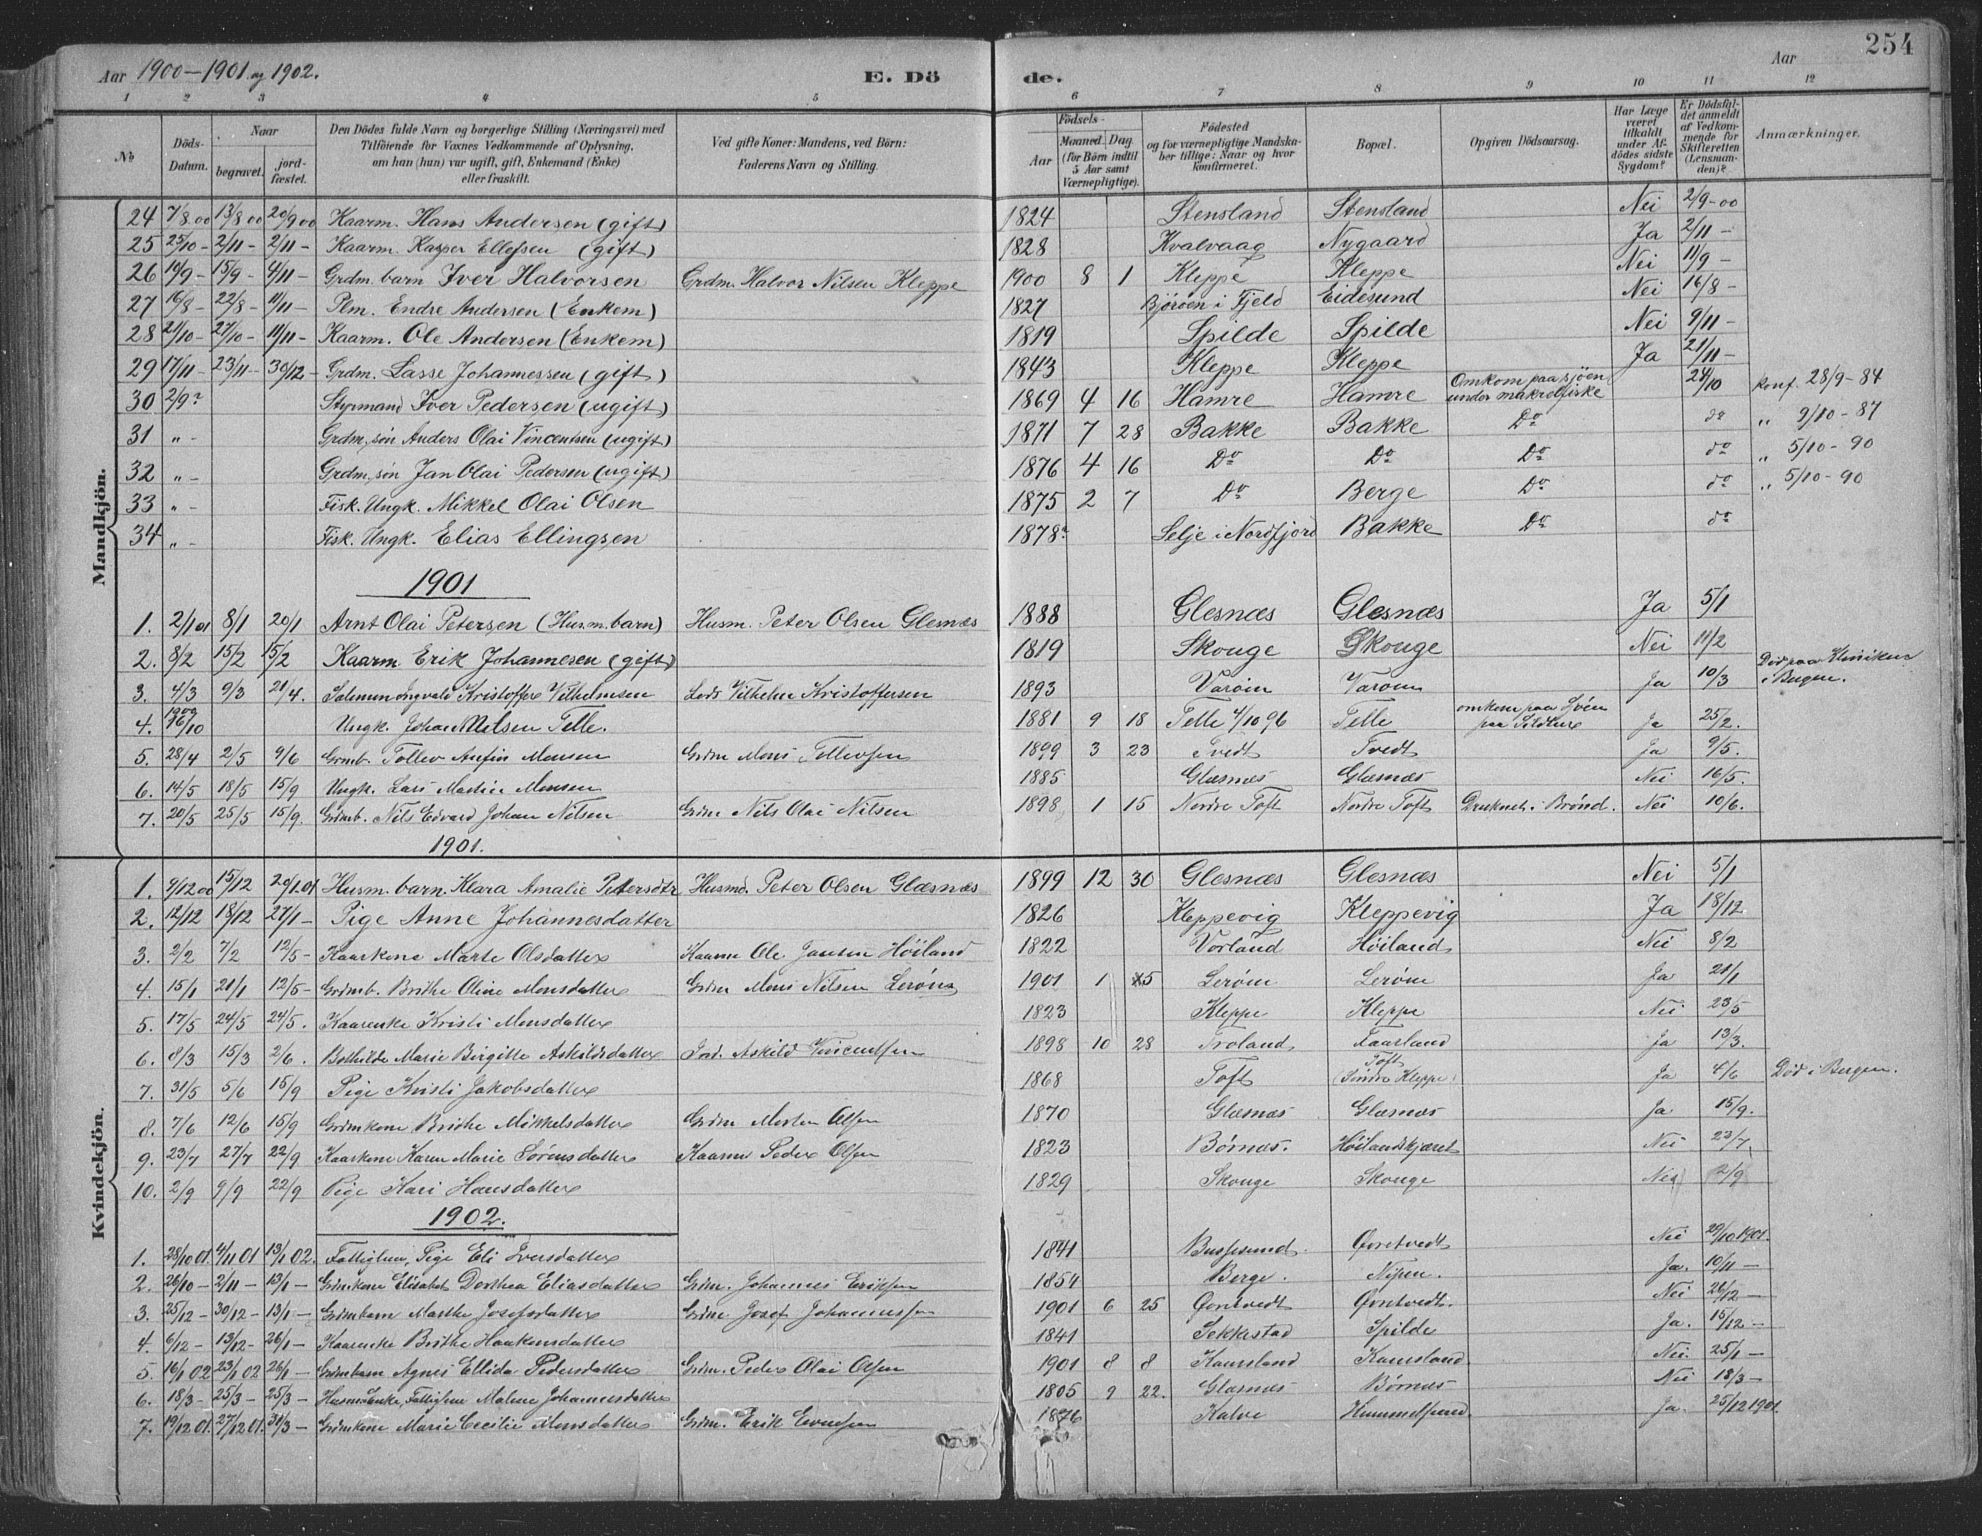 254
Aar 1900-1901 og 1902. E. Dö de. Aar
1 2 3 4 5 6 7 8 9 10 11 12
№ Döds-Datum. Naar begravet. jord-fæstet. Den Dödes fulde Navn og borgerlige Stilling (Næringsvei) med Tilföiende for Voxnes Vedkommende af Oplysning, om han (hun) var ugift, gift, Enkemand (Enke) eller fraskilt. Ved gifte Koner: Mandens, ved Börn: Faderens Navn og Stilling. Födsels- Aar Maaned Dag (for Börn indtil 5 Aar samt Værnepligtige). Födested og for værnepligtige Mandskaber tillige: Naar og hvor konfirmeret. Bopæl. Opgiven Dödsaarsag. Har Læge været tilkaldt under Afdödes sidste Sygdom? Er Dödsfaldet anmeldt af Vedkommende for Skifteretten (Lensmanden)? Anmærkninger.
Mandkjön.
24 7/8 00 13/8 00 20/9 00 Kaarm. Hans Andersen (gift) 1824 Stensland Stensland Nei 2/9-00
25 25/10 - 2/11 - 2/11 - Kaarm. Kasper Ellefsen (gift) 1828 Kvalvaag Nygaard Ja 2/11 -
26 19/9 - 15/9 - 4/11 - Grdm. barn Iver Halvorsen Grdm. Halvor Nilsen Kleppe 1900 8 1 Kleppe Kleppe Nei 11/9 -
27 16/8 - 22/8 - 11/11 - Plm. Endre Andersen (Enkem) 1827 Björöen i Fjeld Eidesund Nei 16/8 -
28 21/10 - 27/10 - 11/11 - Kaarm. Ole Andersen (Enkem) 1819 Spilde Spilde Nei 9/11 -
29 17/11 - 23/11 - 30/12 - Grdm. Lasse Johannessen (gift) 1843 Kleppe Kleppe Ja 21/11 -
30 2/9? Styrmand Iver Pedersen (ugift) 1869 4 16 Hamre Hamre Omkom paa sjöen under makrelfiske 24/10 konf. 28/9-84
31 " - Grdm. sön Anders Olai Vincentsen (ugift) 1871 7 28 Bakke Bakke Do do " 9/10-87
32 " - Grdm. sön Jan Olai Pedersen (ugift) 1876 4 16 Do Do Do do " 5/10-90
33 " - Fisk. Ungk. Mikkel Olai Olsen 1875 2 7 Do Berge Do do " 5/10-90
34 " - Fisk. Ungk. Elias Ellingsen 1878? Selje i Nordfjord Bakke Do do
1901
1. 2/1 01 8/1 20/1 Arnt Olai Petersen (Husm. barn) Husm. Peter Olsen Glesnæs 1888 Glesnæs Glesnæs Ja 5/1
2. 8/2 15/2 15/2 Kaarm Erik Johannesen (gift) 1819 Skouge Skouge Nei 11/2
3. 4/3 9/3 21/4. Salemon Ingvald Kristoffer Vilhelmsen Vilhelm Kristoffersen 1893 Varöin Varöin Ja 10/3 Död paa Kliniken i Bergen.
4. 1900 16/10 Ungk. Johan Nilsen Telle. 1881 9 18 Telle 4/10 96 Telle omkom paa Sjöen paa Ja 25/2.
5. 28/4 2/5 9/6 Grmb. Tollev Anfin Monsen Grdm Mons Tollevsen 1899 3 23 Tvedt Tvedt Ja 9/5.
6. 14/5 18/5 15/9 Ungk. Lars Martin Monsen 1885 Glæsnæs Glæsnæs Nei 16/5.
7. 20/5 25/5 15/9. Grdmb. Nils Edvard Johan Nilsen Grdm Nils Olai Nilsen 1898 1 15 Nordre Toft Nordre Toft Druknet i Brönd. Nei 10/6.
1901.
Kvindekjön.
1. 9/12 00 15/12 20/1 01 Husm. barn. Klara Amalie Petersdtr Husmd. Peter Olsen Glæsnæs 1899 12 30 Glesnæs Glesnæs Nei 5/1
2. 12/12 18/12 27/1 - Pige Anne Johannesdatter 1826 Kleppevig Kleppevig Ja 18/12.
3. 2/2 7/2 12/5 - Kaarkone Marte Olsdatter Kaarm Ole Jansen Höiland 1822 Vorland Höiland Nei 8/2
4. 15/1 21/1 12/5 - Grdmb. Brithe Oline Monsdatter Grdm Mons Nilsen Leröin 1901 1 5 Leröin Leröin Ja 21/1
5. 17/5 24/5 24/5. Kaarenke Kristi Monsdatter 1823 Kleppe Kleppe Nei 23/5
6. 8/3 15/3 2/6. Bothilde Marie Birgitte Askildsdatter Askild Vincentsen 1898 10 28 Troland Faarland Ja 13/3.
7. 31/5 5/6 15/9 Pige Kristi Jakobsdatter 1868 Toft Toft (Söndre Kleppe) Ja 4/6 Död i Bergen.
8. 7/6 12/6 15/9 Grdmkone Brithe Mikkelsdatter Grdm Morten Olsen 1870 Glæsnæs Glæsnæs Ja 15/9.
9. 23/7 27/7 22/9 Kaarkone Karen Marie Sörensdatter Kaarm Peder Olsen 1823 Börnæs. Höilandskjæret Nei 23/7
10. 2/9 9/9 22/9 Pige Kari Hansdatter 1829 Skouge Skouge Nei 2/9
1902.
1. 28/10 01 4/11 01 13/1 02. Fattiglem, Pige Eli Iversdatter 1841 Bussesund. Övretvedt Nei 29/10 1901.
2. 26/10 - 2/11 - 13/1 - Grdmkone Elisabet Dorthea Eliasdatter Grdm. Johannes Eriksen 1854 Berge. Nipen. Ja. 10/11 -
3. 25/12 - 30/12 - 13/1 - Grdmbarn Marthe Josefsdatter Grdm Josef Johannessen 1901 6 25 Övretvedt Övretvedt. Nei 26/12 -
4. 6/12 - 13/12 - 26/1 - Kaarenke Brithe Haakensdatter 1841 Sekkestad Spilde Ja. 15/12 -
5. 16/1 02 23/1 02 26/1 - Grdmbarn Agnes Ellida Pedersdatter Grdm. Peder Olai Olsen 1901 8 8 Kaursland Kaursland. Nei. 25/1 -
6. 18/3 - 25/3 - 25/3 - Husmdsenke, Fattiglem Malene Johannesdatter 1805 9 22. Glæsnæs Börnæs Nei 18/3 -
7. 19/12 01. 27/12 01. 31/3 - Grdmkone Marie Cecilie Monsdatter Grdm. Erik 1876 Kalve Ja. 25/12 1901.